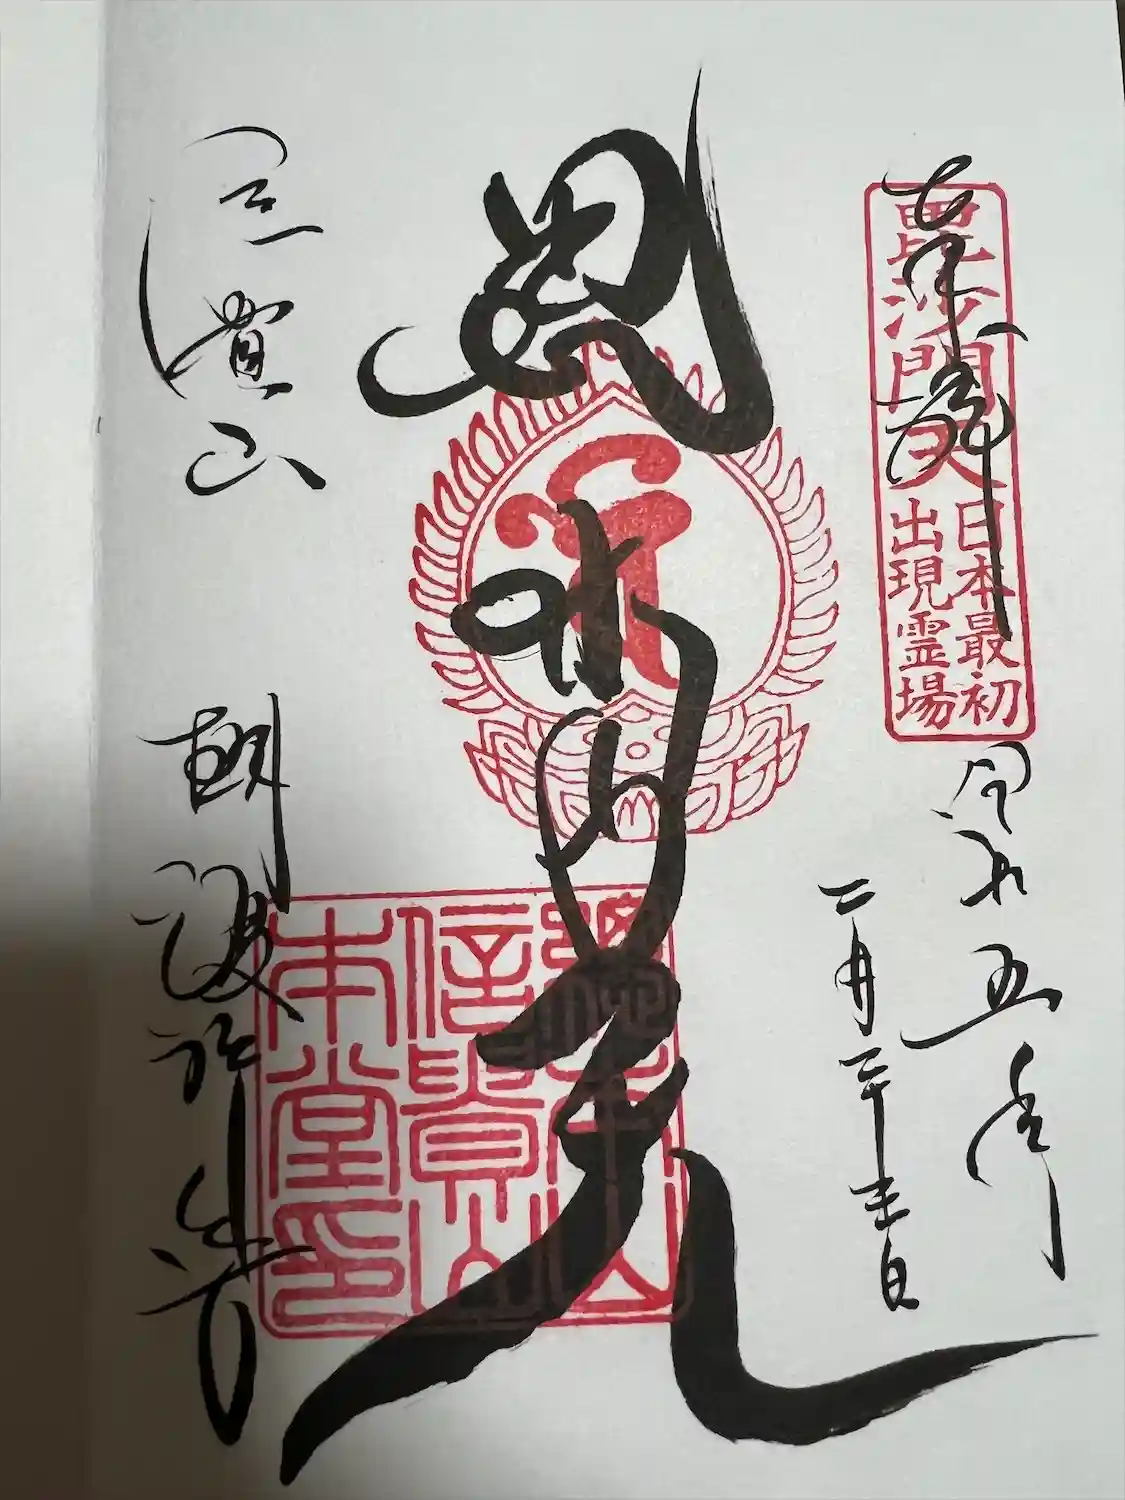 奉拝
毘沙門天
日本最初
出現霊場
令和五年
二月二十 日
毘沙門天
總本山
信貴山
本堂印
信貴山
朝護孫子寺